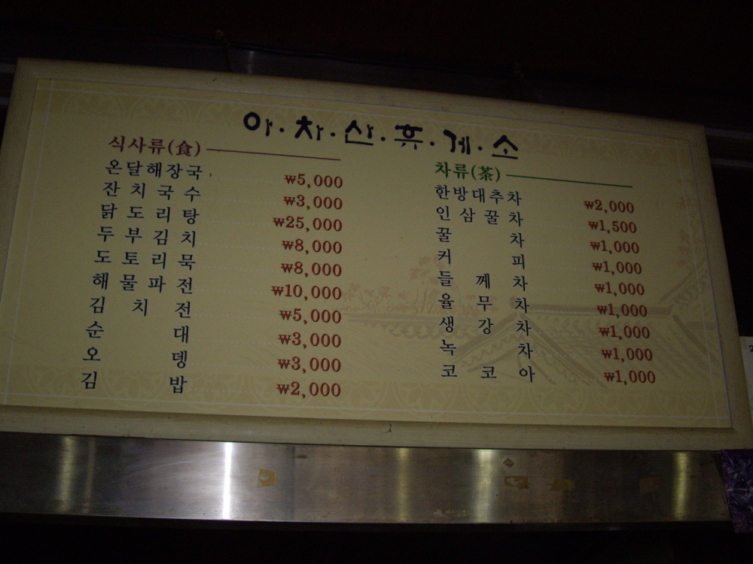 아·차·산·휴·게·소
식사류(食)
온달해장국 ₩5,000
잔치국수 ₩3,000
닭도리탕 ₩25,000
두부김치 ₩8,000
도토리묵 ₩8,000
해물파전 ₩10,000
김치전 ₩5,000
순대 ₩3,000
오뎅 ₩3,000
김밥 ₩2,000
차류(茶)
한방대추차 ₩2,000
인삼꿀차 ₩1,500
꿀차 ₩1,000
커피 ₩1,000
들깨차 ₩1,000
율무차 ₩1,000
생강차 ₩1,000
녹차 ₩1,000
코코아 ₩1,000